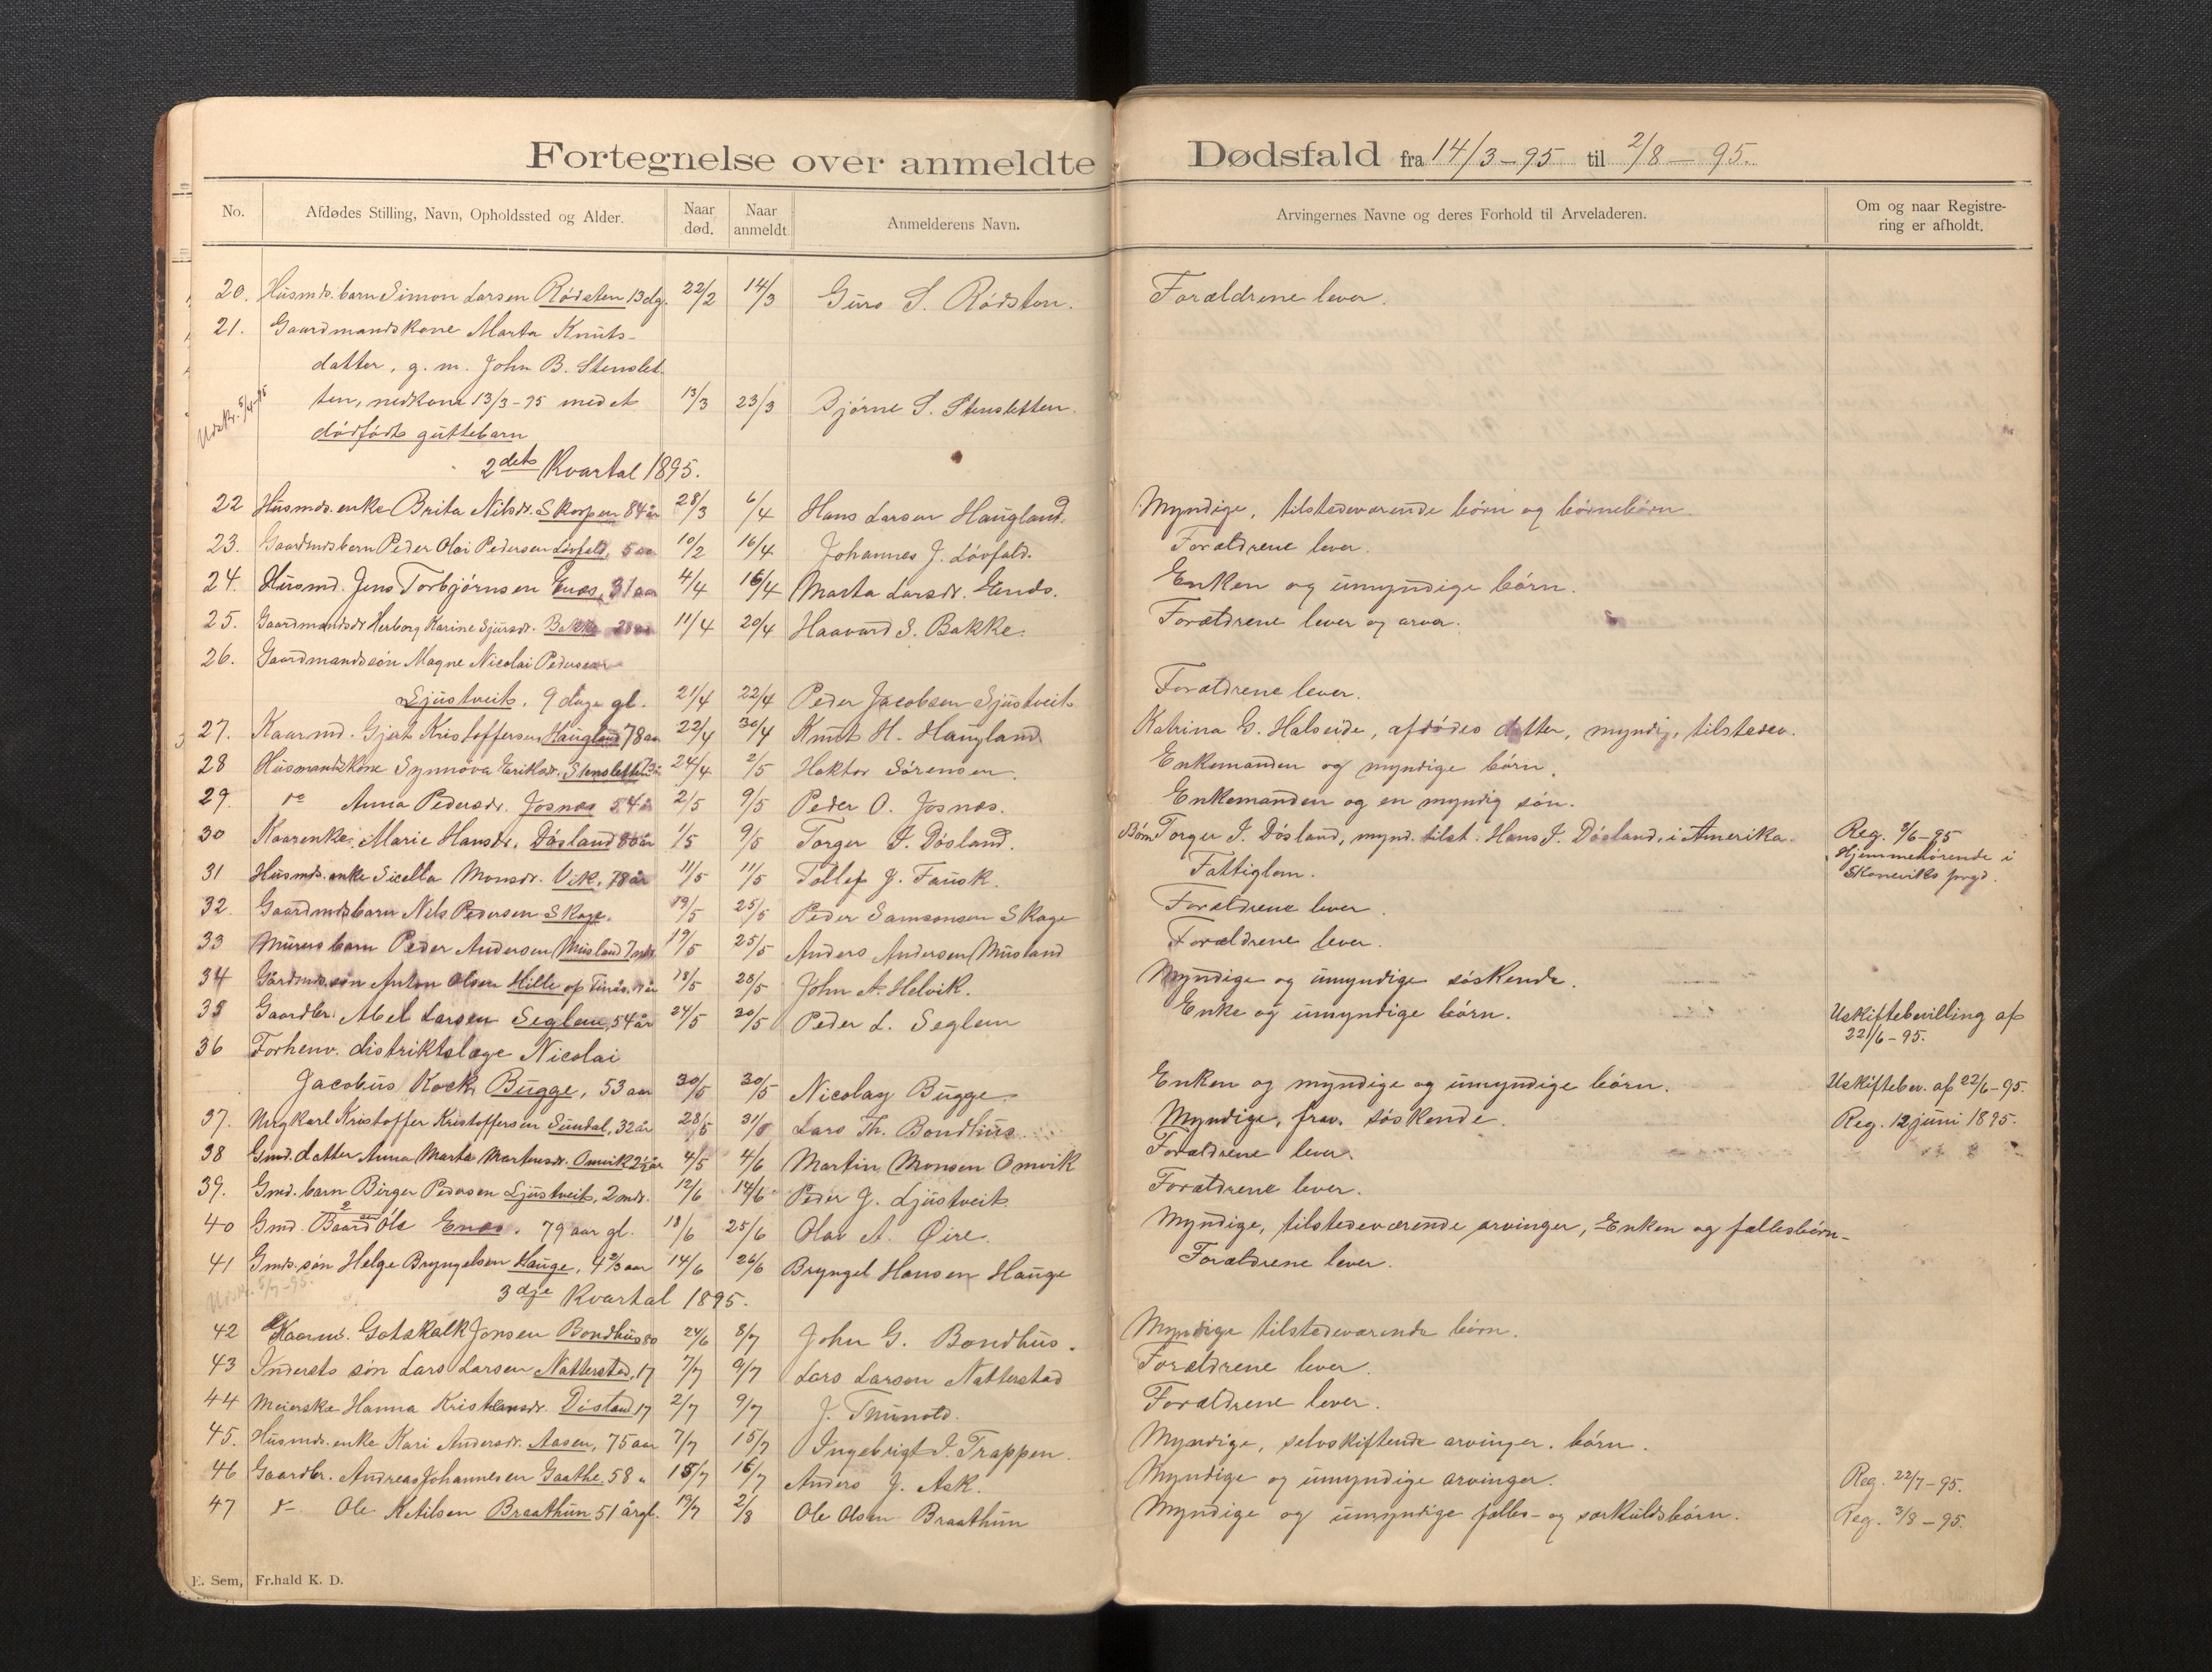 Fortegnelse over anmeldte Dødsfald fra 14/3-95 til 2/8-95.
No. Afdødes Stilling, Navn, Opholdssted og Alder. Naar død. Naar anmeldt. Anmelderens Navn. Arvingernes Navne og deres Forhold til Arveladeren. Om og naar Registrering er afholdt.
20. Husmds. barn Simon Larsen Rödsten 13 dg. 22/2 14/3 Guro S. Rödsten. Forældrene lever.
21. Gaardmandskone Marta Knuts-
datter, g. m. John B. Stenslet-
ten, nedkom 13/3-95 med et 13/3 23/3 Bjørne S. Stensletten.
Udskr. 5/4-95
dödfödt guttebarn
2det Kvartal 1895.
22 Husmds. enke Brita Nilsdr. Skorpen 84 år 28/3 6/4 Hans Larsen Haugland. Myndige, tilstedeværende börn og börnebörn.
23. Gaardmdsbarn Peder Olai Pedersen Lövfald, 5 aar 10/2 16/4 Johannes J. Lövfald. Forældrene lever.
24. Husmd. Jens Torbjörnsen Enæs, 31 aar 4/4 16/4 Marta Larsdr. Enæs. Enken og umyndige börn.
25. Gaardmandsdr Herborg Karine Sjursdr. Bakke 28 aar 11/4 20/4 Haavard S. Bakke. Forældrene lever og arver.
26. Gaardmandssön Magne Nicolai Pedersen
Ljustveit, 9 dage gl. 21/4 22/4 Peder Jacobsen Ljustveit Forældrene lever.
27. Kaarmd. Gjert Kristoffersen Haugland 78 aar 22/4 30/4 Knut H. Haugland Katrina G. Halseide, afdödes datter, myndig, tilstedev.
28 Husmandskone Synnöva Eriksdr. Stensletten 24/4 2/5 Hektor Sörensen. Enkemanden og myndige börn.
29. do Anna Pedersdr. Josnæs 54 år 2/5 9/5 Peder O. Josnæs. Enkemanden og en myndig sön.
30 Kaarenke Marie Hansdr. Dösland 80 år 1/5 9/5 Torger I. Dösland. Börn Torger I. Dösland, mynd. tilst. Hans I. Dösland, i Amerika. Reg. 8/6-95
31 Husmds. enke Sicella Monsdr. Vik, 78 år 11/5 11/5 Tollef G. Fausk. Fattiglem. Hjemmehörende i
Skoneviks prgd.
32. Gaardmdsbarn Nils Pedersen Skage. 19/5 25/5 Peder Samsonsen Skage Forældrene lever.
33 Murers barn Peder Andersen Musland 7 mdr. 19/5 25/5 Anders Andersen Musland Forældrene lever.
34 Gårdmds. sön Anton Olsen Hille 18/5 28/5 John A. Helvik. Myndige og umyndige söskende.
35 Gaardbr. Abel Larsen Seglem, 54 år 24/5 30/5 Peder L. Seglem Enke og umyndige börn. Uskiftebevilling af
22/6-95.
36 Forhenv. distriktslæge Nicolai
Jacobus Kock Bugge, 53 aar 30/5 30/5 Nicolay Bugge Enken og myndige og umyndige börn. Uskiftebev. af 22/6-95.
37. Ungkarl Kristoffer Kristoffersen Sundal, 32 år 28/5 31/5 Lars Th. Bondhus Myndige, frav. söskende. Reg. 12 juni 1895.
38 Gmd. datter Anna Marta Martinsdr. Omvik 2½ år 4/5 4/6 Martin Monsen Omvik Forældrene lever.
39. Gmd. barn Birger Pedersen Ljustveit, 2 mdr. 12/6 14/6 Peder J. Ljustveit Forældrene lever.
40 Gmd. Baard Ole Enæs. 79 aar gl. 18/6 25/6 Olav A. Øire. Myndige, tilstedeværende arvinger, Enken og fællesbörn.
41 Gmds. sön Helge Bryngelsen Hauge, 4 2/3 aar 14/6 26/6 Bryngel Hansen Hauge Forældrene lever.
Udskr. 5/7-95.
3dje Kvartal 1895.
42 Kaarm. Gotskalk Jonsen Bondhus 80 24/6 8/7 John G. Bondhus. Myndige tilstedeværende börn.
43 Indersts sön Lars Larsen Natterstad, 17 7/7 9/7 Lars Larsen Natterstad Forældrene lever.
44 Meierske Hanna Kristensdr. 17 2/7 9/7 Forældrene lever.
45. Husmds. enke Kari Andersdr. Aasen, 75 aar 7/7 15/7 Ingebrigt I. Trappen. Myndige, selvskiftende arvinger. börn.
46 Gaardbr. Andreas Johannesen Gaathe 58 " 15/7 16/7 Anders J. Ask. Myndige og umyndige arvinger. Reg. 22/7-95.
47 do Ole Ketilsen Braathun 51 årgl. 19/7 2/8 Ole Olsen Braathun Myndige og umyndige fælles- og særkuldsbörn. Reg. 3/8-95.
E. Sem, Fr.hald K. D.